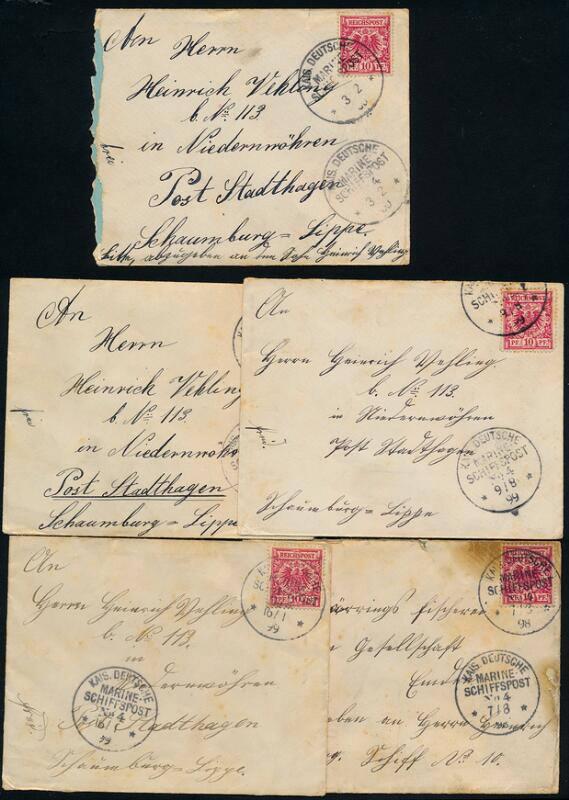 An
Herrn
Heinrich Vehling
b. No. 113
in Niedernwöhren
Post Stadthagen
Schaumburg=Lippe.
frei
bitte, abzugeben an den Sohn Heinrich Vehling
REICHSPOST
10
KAIS. DEUTSCHE
MARINE-
SCHIFFSPOST
3 2
KAIS. DEUTSCHE
MARINE-
SCHIFFSPOST
4
3 2
00
An
Herrn
Heinrich Vehling
b No. 113.
in Niedernwöh
Post Stadthagen
Schaumburg=Lippe
An
Herrn Heinrich Vehling.
b. No. 113.
in Niedernwöhren
Post Stadthagen
Schaumburg=Lippe
PF. 10 PF.
KAIS. DEUTSCHE
MARINE-
SCHIFFSPOST
No 4
9/8
99
An
Herrn Heinrich Vehling
b. No. 113.
in
Niedernwöhren
Post Stadthagen
Schaumburg=Lippe.
REICHSPOST
16/1
99
KAIS. DEUTSCHE
MARINE-
SCHIFFSPOST
No 4
16/1
99
örrings Fischerei
Gesellschaft
Emden
ben an Herrn Heinrich
Schiff No. 10.
KAIS. DEUTSCHE
MARINE-
SCHIFFSPOST
98
KAIS. DEUTSCHE
MARINE-
SCHIFFSPOST
No 4
7/8